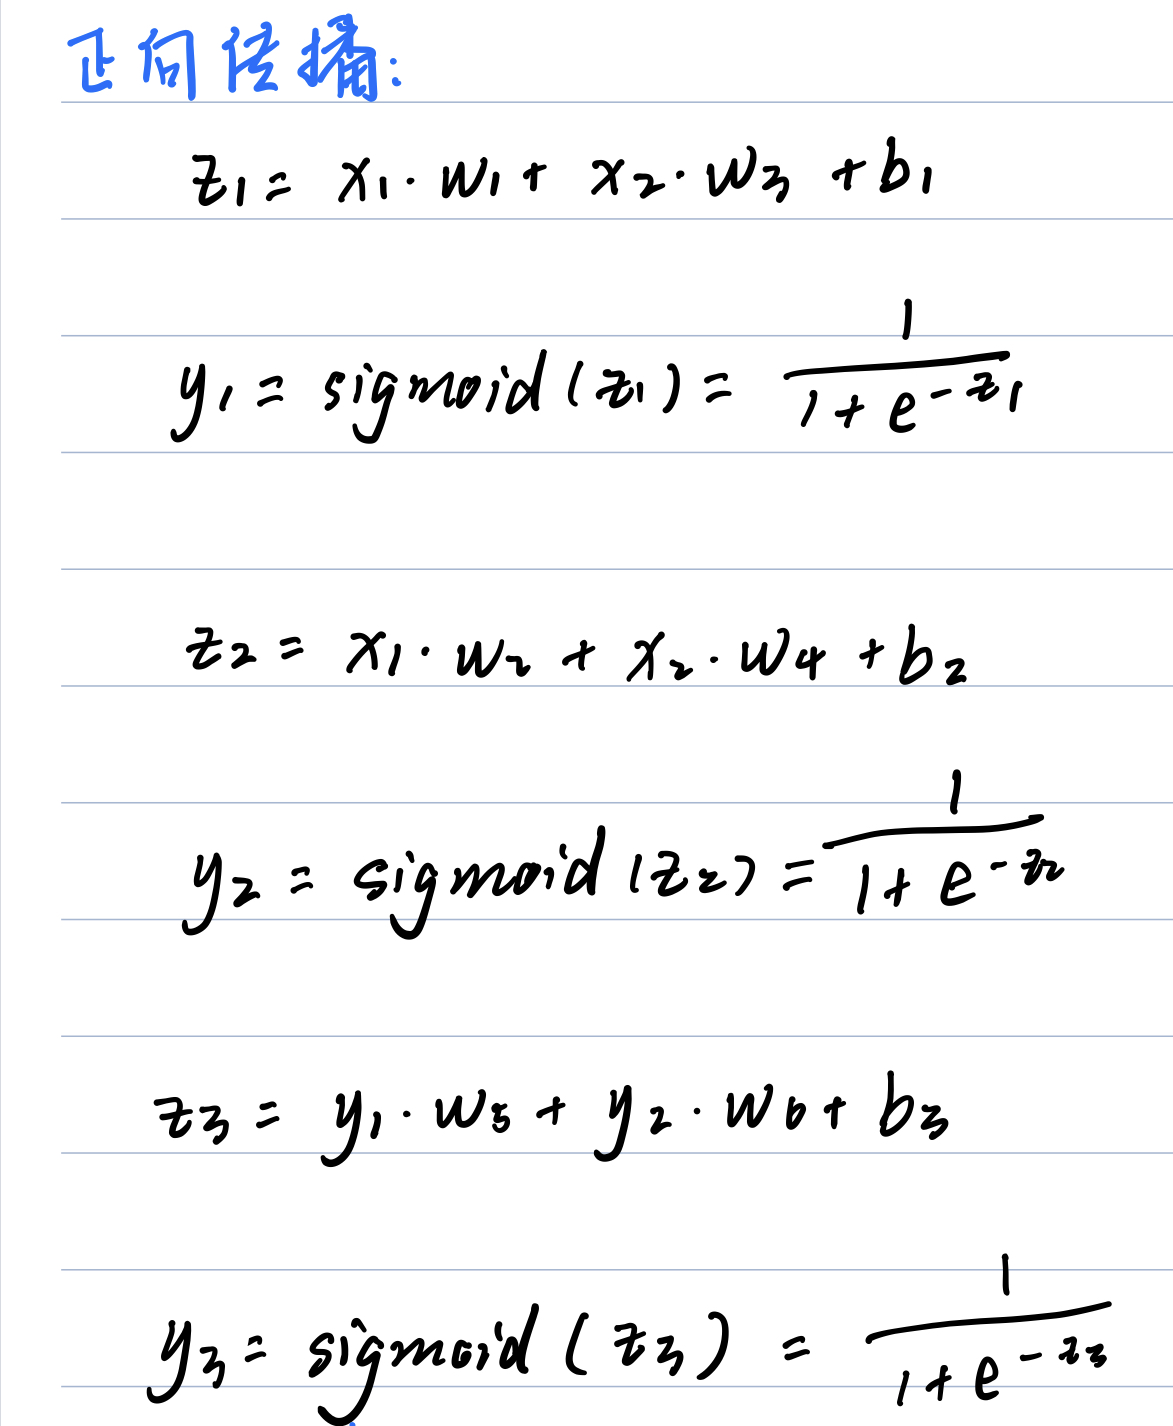 正向传播:
z₁ = x₁·w₁ + x₂·w₃ + b₁
y₁ = sigmoid(z₁) = 1/(1+e^(-z₁))
z₂ = x₁·w₂ + x₂·w₄ + b₂
y₂ = sigmoid(z₂) = 1/(1+e^(-z₂))
z₃ = y₁·w₅ + y₂·w₆ + b₃
y₃ = sigmoid(z₃) = 1/(1+e^(-z₃))